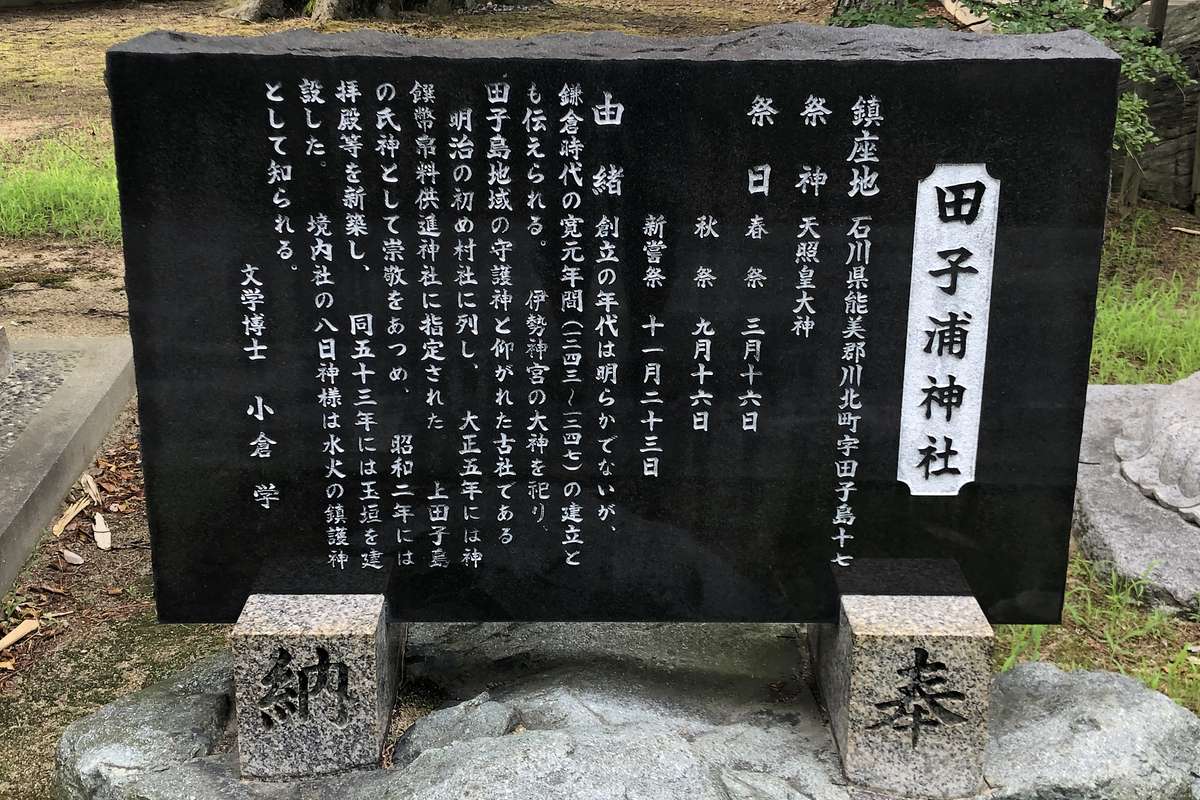 田子浦神社
鎮座地 石川県能美郡川北町字田子島十七
祭神 天照皇大神
祭日 春祭 三月十六日
秋祭 九月十六日
新嘗祭 十一月二十三日
由緒 創立の年代は明らかでないが、
鎌倉時代の寛元年間(一二四三〜一二四七)の建立と
も伝えられる。 伊勢神宮の大神を祀り、
田子島地域の守護神と仰がれた古社である
明治の初め村社に列し、 大正五年には神
饌幣帛料供進神社に指定された 上田子島
の氏神として崇敬をあつめ、 昭和二年には
拝殿等を新築し、 同五十三年には玉垣を建
設した。 境内社の八日神様は水火の鎮護神
として知られる。
文学博士 小倉 学
奉
納